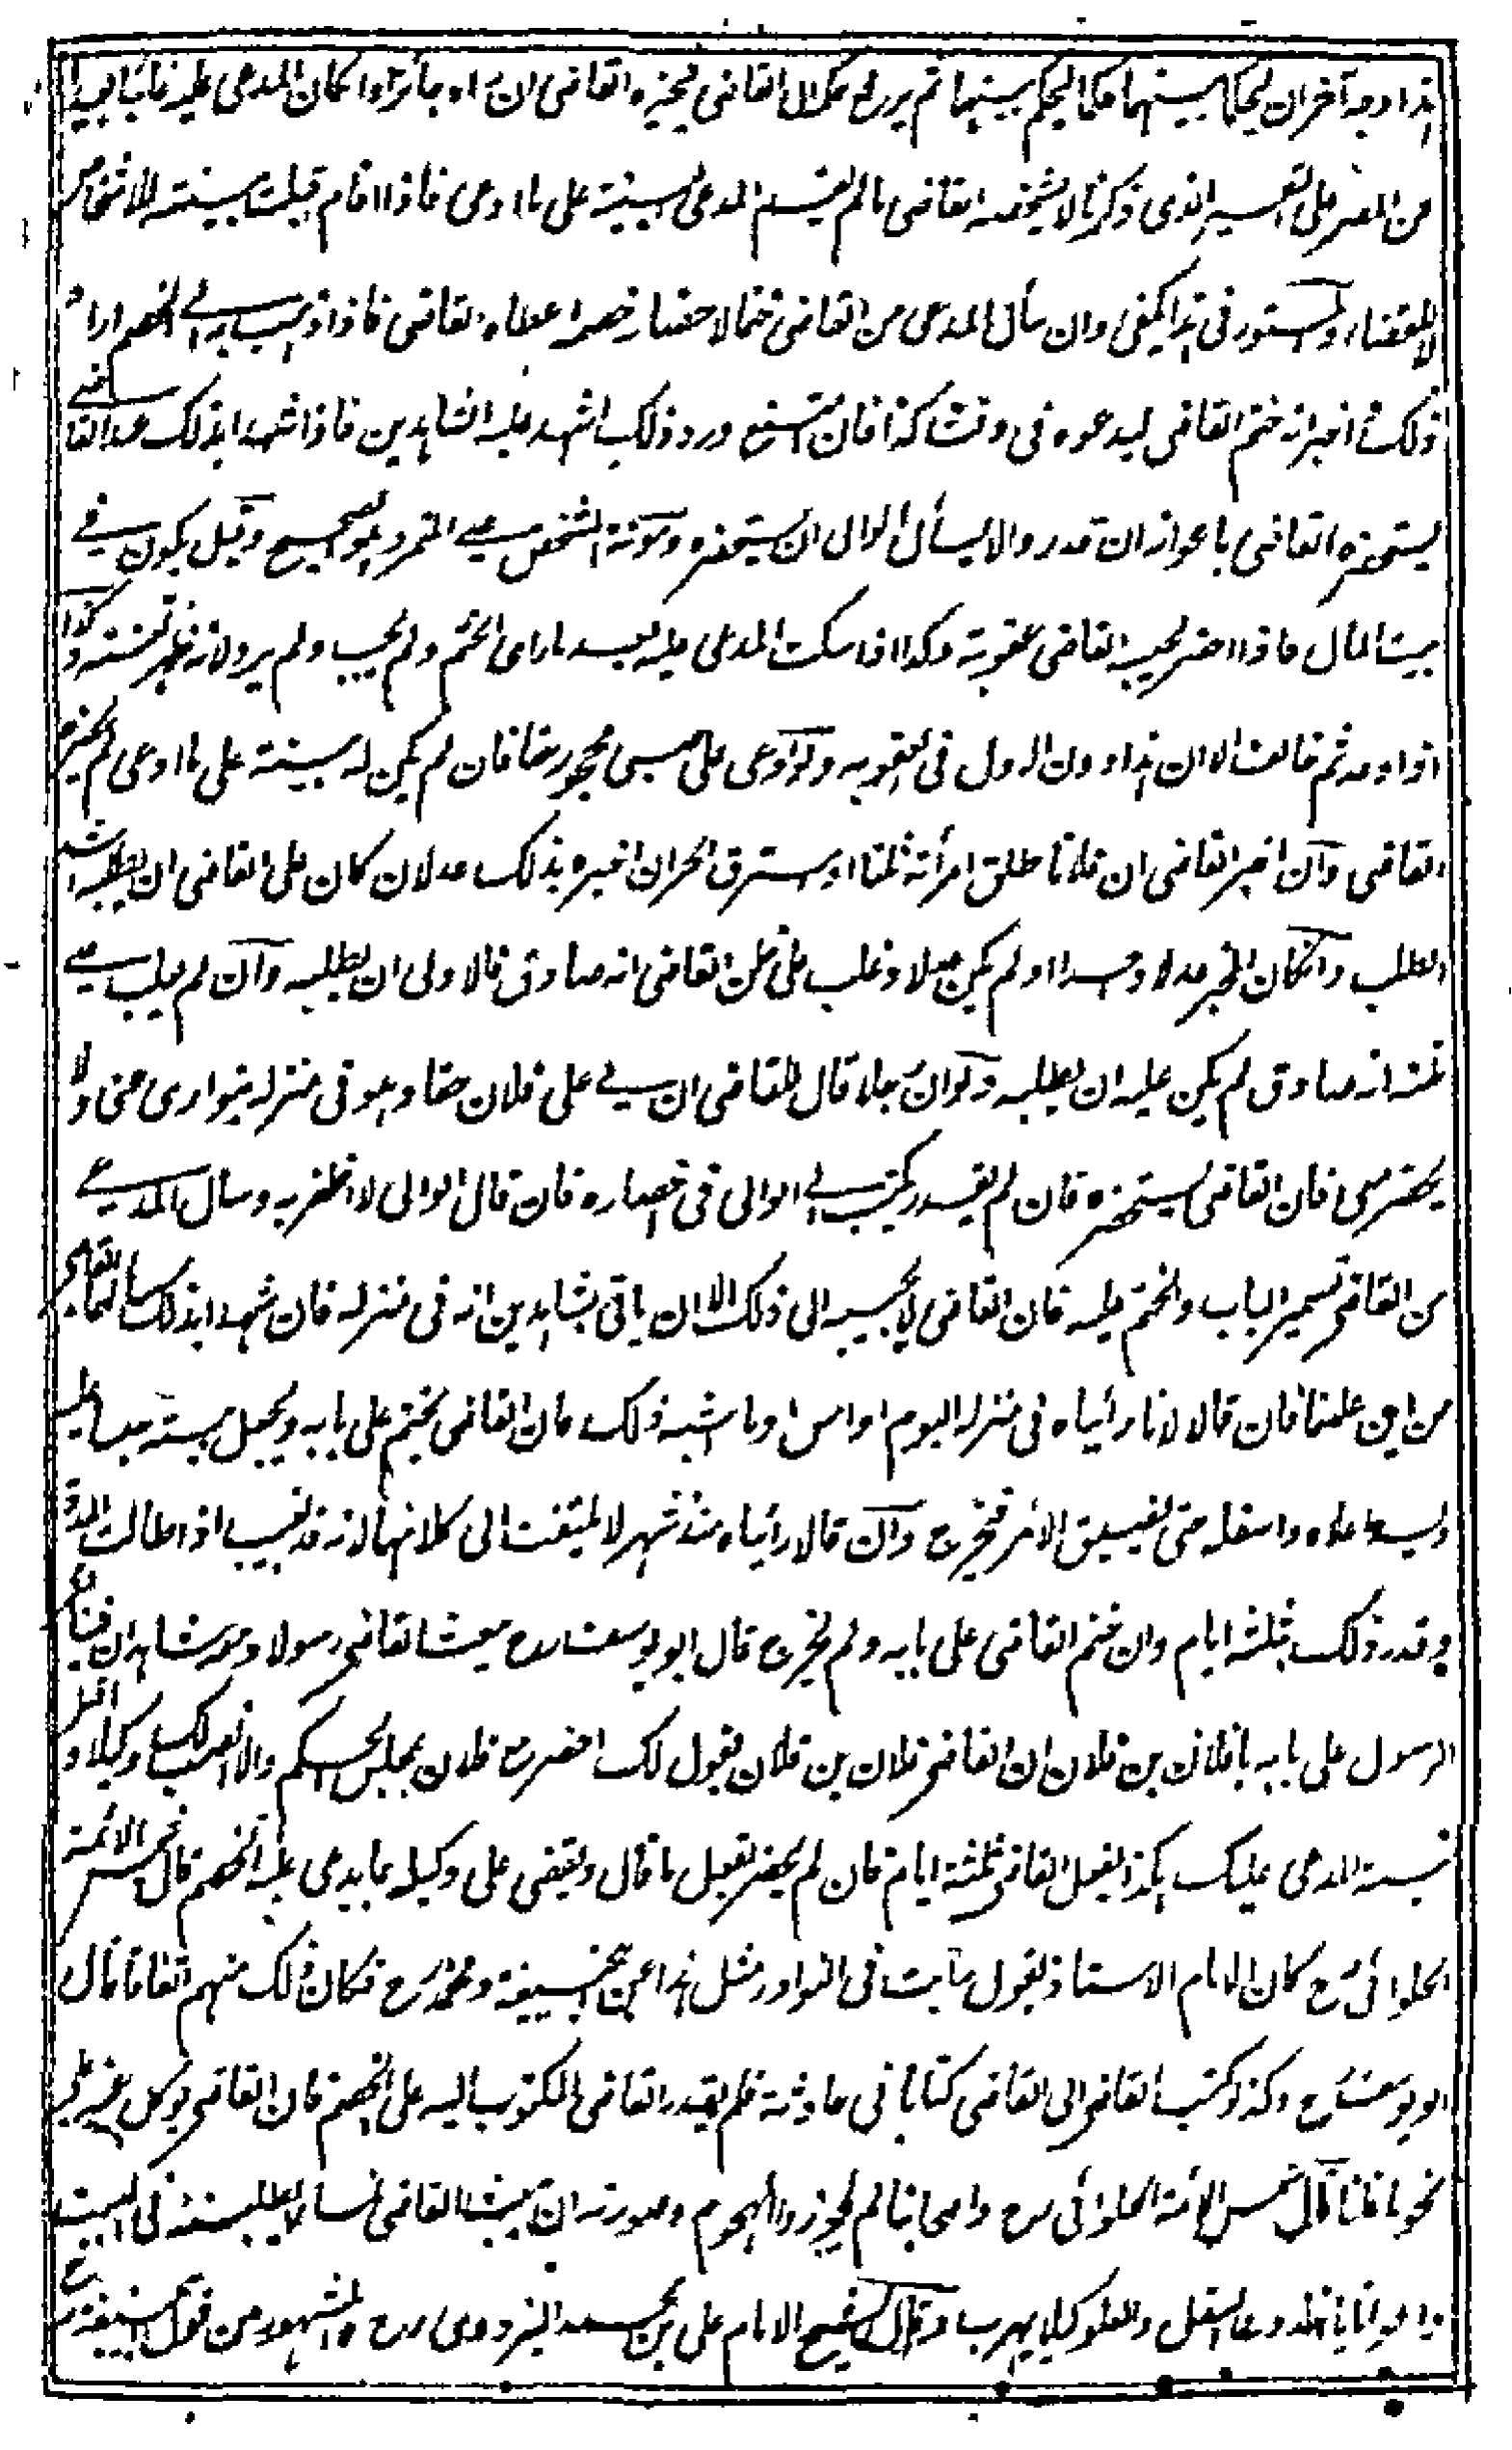 هذا وجه آخر ان يحكما بينهما حكما ليحكم بينهما ثم يرفع حكمه الى القاضي ليجيزه القاضي ان رآه جائزا واذا كان المدعى عليه غائبا بعيدا
من المصر على التفسير الذي ذكرنا لا يشخصه القاضي ما لم يقم المدعي البينة على ما ادعى فاذا اقام قبلت بينته للاشخاص
لا للقضاء والمستور في هذا يكفي وان سأل المدعي من القاضي ختما لاحضار خصمه اعطاه القاضي فاذا ذهب به الى الخصم اراه
ذلك واخبر انه ختم القاضي ليدعوه في وقت كذا فان امتنع ورد ذلك اشهد عليه الشاهدين فاذا شهدا بذلك عند القاضي
يستحضره القاضي باعوانه ان قدر والا يسأل الوالي ان يستحضره ومؤنة الشخص على المتمرد هو الصحيح وقيل يكون في
بيت المال فاذا احضر يحبسه القاضي عقوبة وكذا اذا سكت المدعى عليه بعد ما رأى الختم ولم يجب ولم يرد لانه ظهر تعنته وكذا
اذا وعد ثم خالف الا ان هذا دون الاول في العقوبة ولو ادعى على صبي محجور حقا فان لم يكن له بينة على ما ادعى لم يحضره
القاضي وان اخبر القاضي ان فلانا طلق امرأته ثلثا او استرق الحر ان اخبره بذلك عدلان كان على القاضي ان يطلبه اشد
الطلب وان كان المخبر عدلا واحدا او لم يكن عدلا وغلب على ظن القاضي انه صادق فالاولى ان يطلبه وان لم يغلب على
ظنه انه صادق لم يكن عليه ان يطلبه ولو ان رجلا قال للقاضي ان لي على فلان حقا وهو في منزله يتوارى عني ولا
يحضر معي فان القاضي يستحضره فان لم يقدر يكتب الى الوالي في احضاره فان قال الوالي لا اظفر به وسأل المدعي
من القاضي تسمير الباب والختم عليه فان القاضي لا يجيبه الى ذلك الا ان يأتي بشاهدين انه في منزله فان شهدا بذلك سألهما القاضي
من اين علمتما فان قالا لانا رأيناه في منزله اليوم او امس او ما اشبه ذلك فان القاضي يختم على بابه ويجعل بيته عليه
ويسد اعلاه واسفله حتى يضيق الامر فيخرج وان قالا رأيناه منذ شهر لا يلتفت الى كلامهما لانه قد يغيب اذا طالت المدة
وقدر ذلك بثلثة ايام وان ختم القاضي على بابه ولم يخرج قال ابو يوسف رح يبعث القاضي رسولا ومعه شاهدان فينادي
الرسول على بابه يا فلان بن فلان ان القاضي فلان بن فلان يقول لك احضر مع فلان بمجلس الحكم والا انصب لك وكيلا واقبل
بينة المدعي عليك هكذا يفعل القاضي ثلثة ايام فان لم يحضر يفعل ما قال ويقضي على وكيله بما يدعي عليه الخصم قال شمس الائمة
الحلوائي رح كان الامام الاستاذ يقول رأيت في النوادر مثل هذا عن ابي حنيفة ومحمد رح فكان ذلك منهم اتفاقا قال
ابو يوسف رح وكذا لو كتب القاضي الى القاضي كتابا في حادثة فلم يقدر القاضي المكتوب اليه على الخصم فان القاضي يوكل عنه على
نحو ما قلنا قال شمس الائمة الحلوائي رح واصحابنا لم يجوزوا الهجوم وصورته ان يبعث القاضي نساء ليطلبنه في البيت
والاعوان يأخذون السفل والعلو كيلا يهرب وقال الشيخ الامام علي بن محمد البزدوي رح والمشهور من قول ابي حنيفة رح